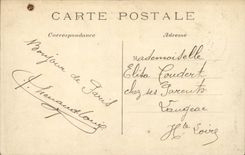 CARTE POSTALE
Correspondance
Adresse
Bonjour de Paris
Mademoiselle
Elita Coudert
chez ses Parents
Langeac
Hte Loire